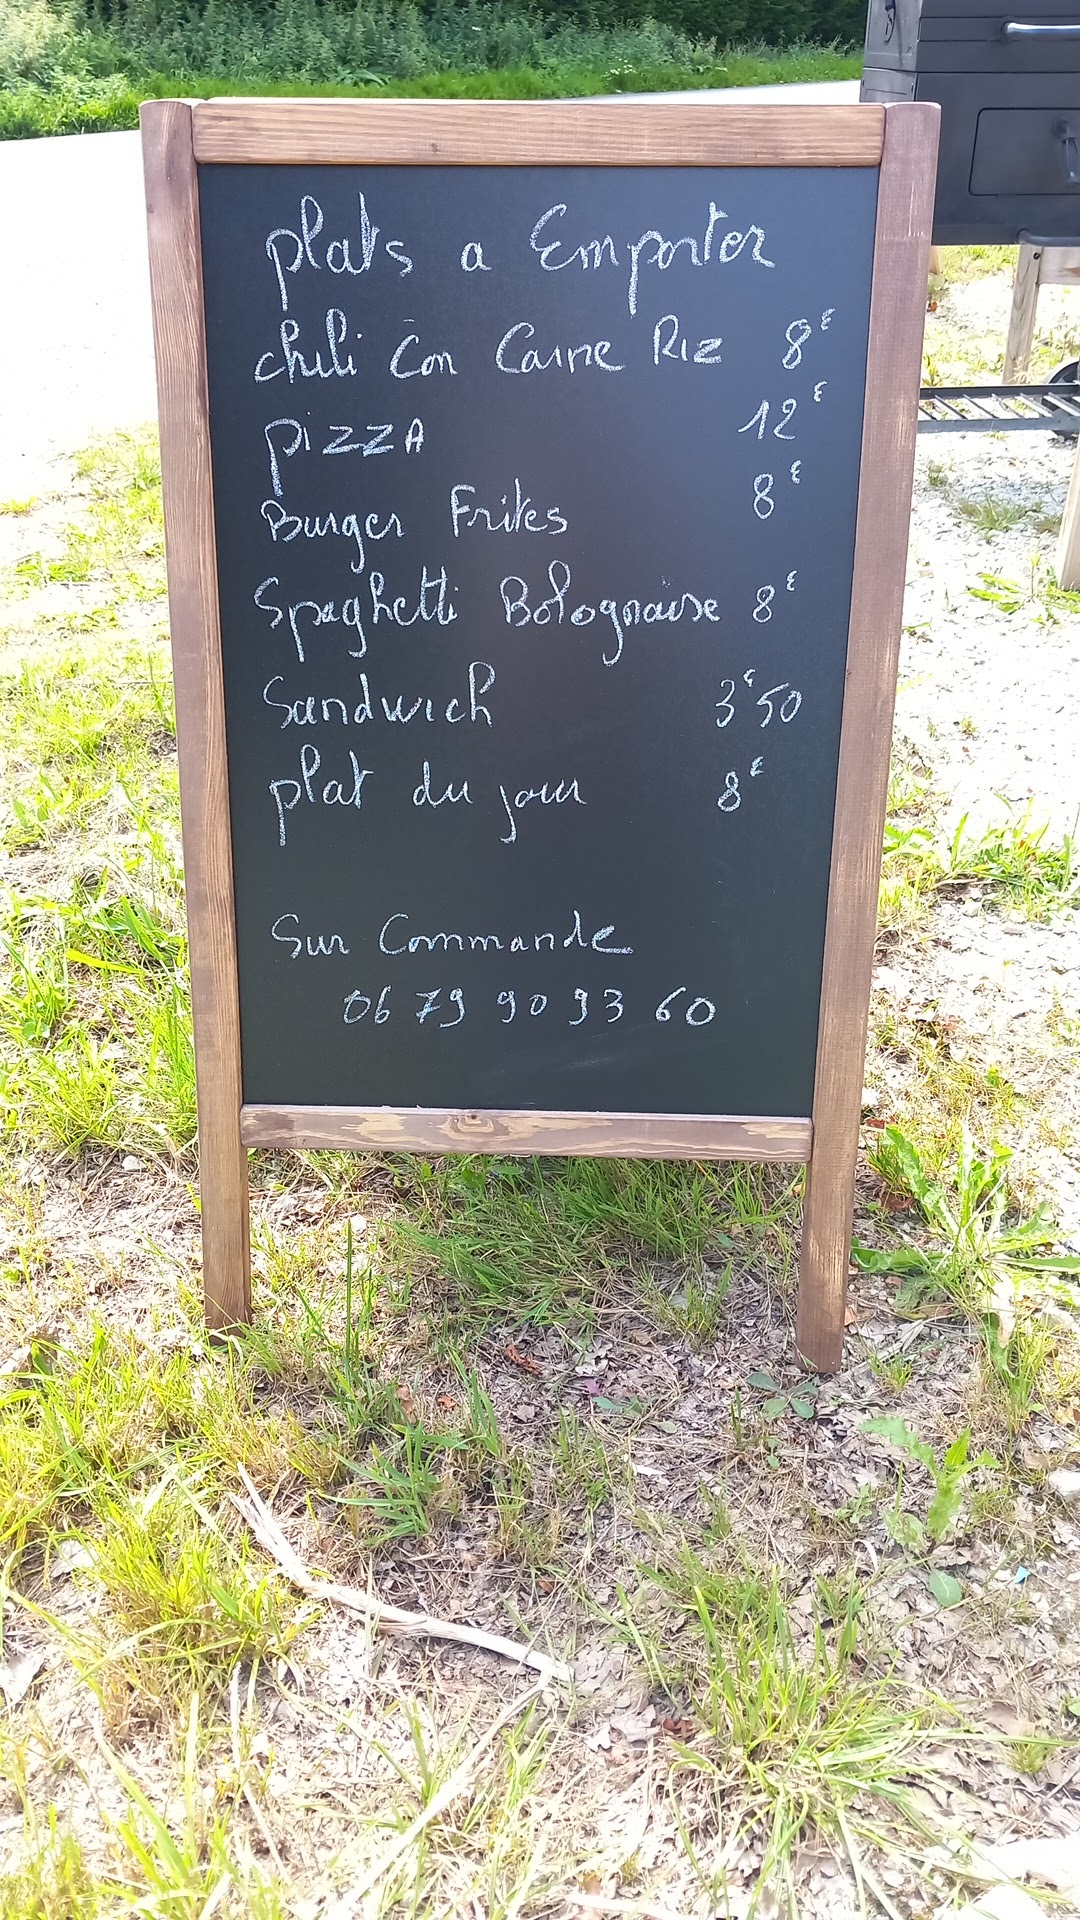 plats a Emporter
chili Con Carne Riz 8€
pizzA 12€
Burger Frites 8€
Spaghetti Bolognaise 8€
Sandwich 3€50
plat du jour 8€
Sur Commande
06 79 90 93 60